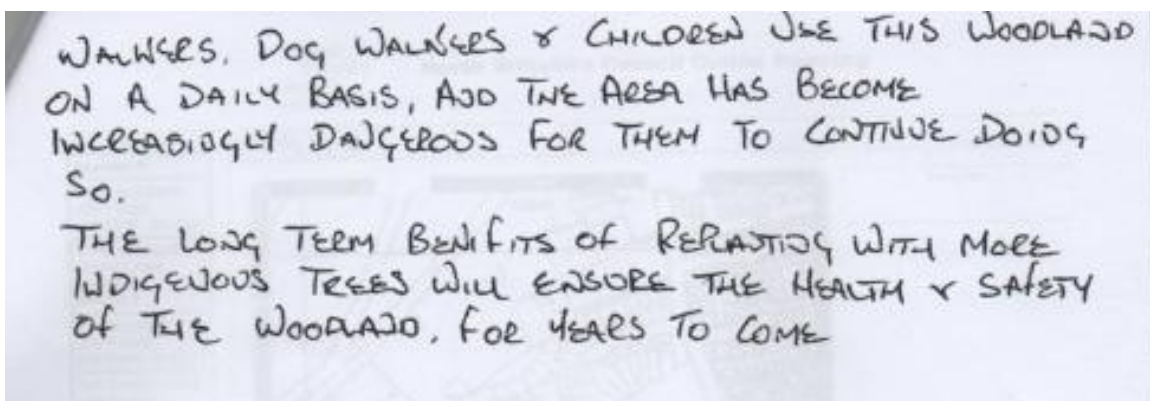 WALKERS, DOG WALKERS & CHILDREN USE THIS WOODLAND
ON A DAILY BASIS, AND THE AREA HAS BECOME
INCREASINGLY DANGEROUS FOR THEM TO CONTINUE DOING
SO.
THE LONG TERM BENIFITS OF REPLANTING WITH MORE
INDIGENOUS TREES WILL ENSURE THE HEALTH & SAFETY
OF THE WOODLAND, FOR YEARS TO COME